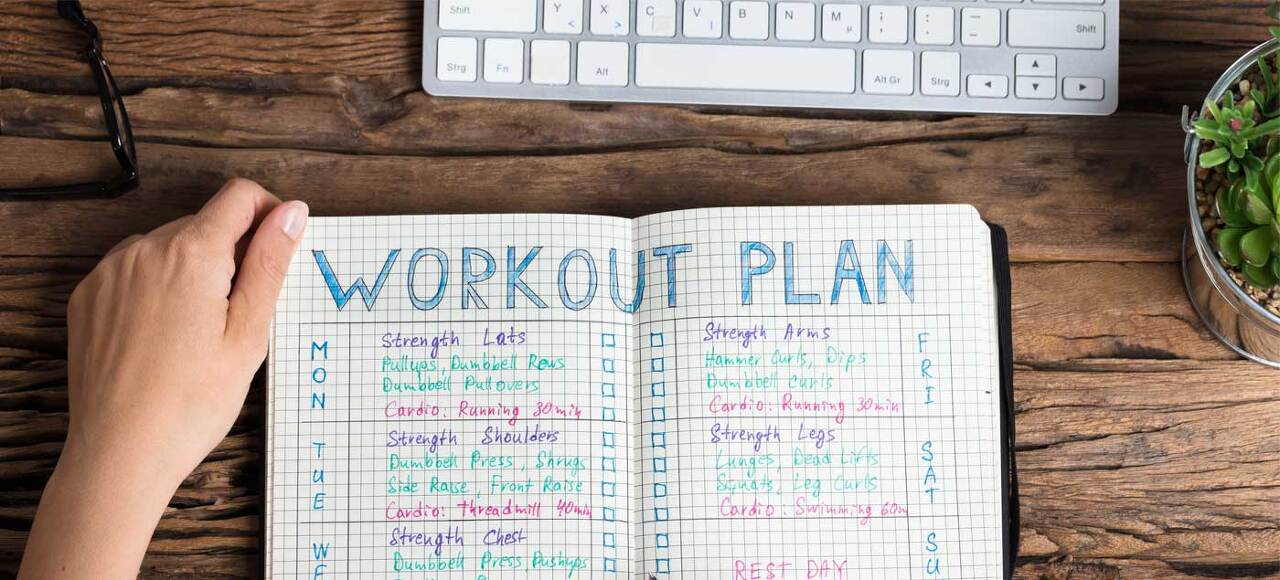 Shift Y X C V B N M ; : _ Shift
< > | µ , . -
Strg Fn Alt Alt Gr Strg
WORKOUT PLAN
MON
Strength Lats
Pullups, Dumbbell Rows
Dumbbell Pullovers
Cardio: Running 30min
TUE
Strength Shoulders
Dumbbell Press, Shrugs
Side Raise, Front Raise
Cardio: threadmill 40min
WE
Strength Chest
Dumbbell Press, Pushups
Strength Arms
Hammer Curls, Dips
Dumbbell curls
Cardio: Running 30min
FRI
Strength Legs
Lunges, Dead Lifts
Squats, Leg Curls
Cardio: Swimming 60m
SAT
REST DAY
SU